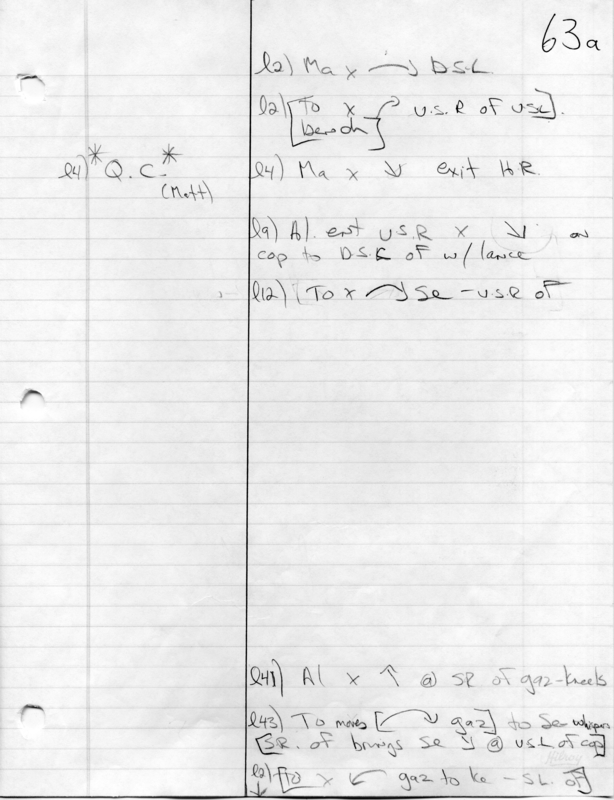 63a
l2) Ma x ⤵ D.S.L.
l2) [To x bench] ⤴ U.S.R of USL].
l4) *Q.C.* l4) Ma x ↓ exit H.R.
(Matt)
l9) Al. ent U.S.R x ↘ on
cop to D.S.L of w/ lance
l12) [To x ⤵ Se - U.S.R of
l41) Al x ↑ @ SR of gaz-kneels
l43) To moves [⤵ gaz] to Se whispers
[SR. of brings Se ↘ @ USL of cop]
Hilroy
l2) [To x ↙ gaz to Ke - SL. of]